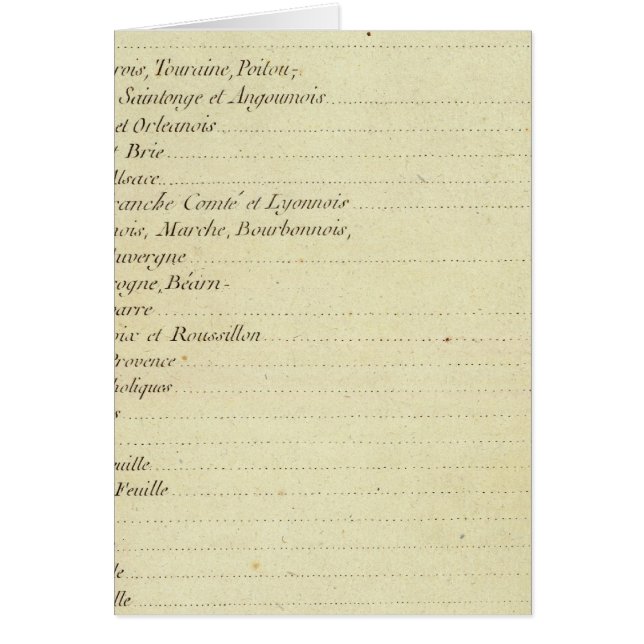 rois, Touraine, Poitou,
Saintonge et Angoumois
et Orleanois
t Brie
lsace
ranche Comté et Lyonnois
nois, Marche, Bourbonnois,
uvergne
rogne, Béarn
arre
oix et Roussillon
Provence
holiques
s
euille
Feuille
e
le
lle